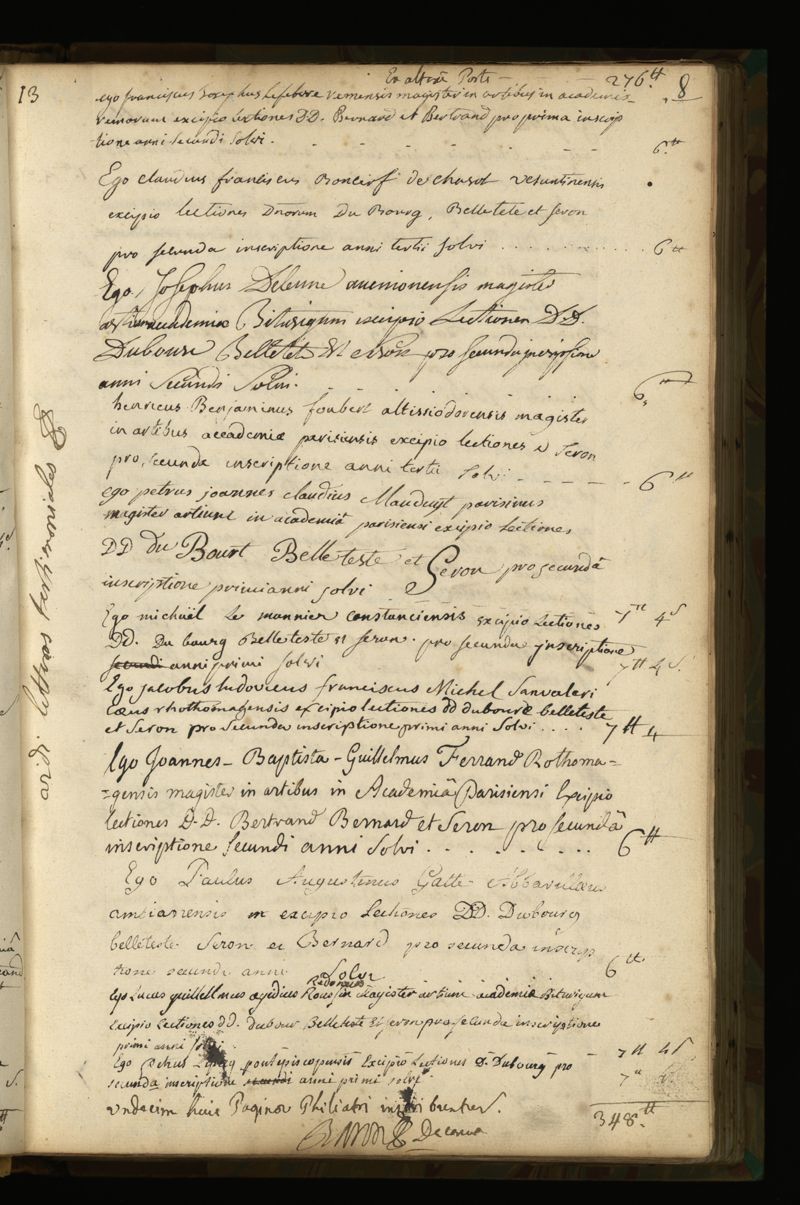 13
Ex altera Parte — 276.tt 8
ego franciscus Josephus Lefebvre remensis magister in artibus in academia
remorum excipio lectiones DD. Bernard et Bertrand pro prima inscrip
tione anni secundi solvi. 6.tt
Ego claudius franciscus Boncerf de chavot vesuntinensis
excipio lectiones Dnorum Du Bourg, Belletete et seron
pro secunda inscriptione anni tertii solvi . . . . . . . . . . . 6tt
Ego, Josephus Deleune avenionensis magister
artium academiae Biturigum excipio Lectiones D.D.
Dubourg Belletete et seron pro secunda inscriptione
anni secundi Solvi. 6.tt
henricus Benjaminus foubert altissiodorensis magister
in artibus accademiae parisiensis excipio lectiones D seron
pro, secunda inscriptione anni tertii solvi - - - - - - 6tt
ego petrus joannes claudius Mauduyt parisinus
magister artium in academiâ parisiensi excipio Lectiones
DD du Bourt Belleteste et Seron pro secundâ
inscriptione primi anni solvi 7tt 4s
Ego michaël Le monnier constanciensis excipio Lectiones
DD. Du bourg Belleteste et seron. pro secunda inscriptione
secundi anni primi solvi 7tt 4s.
Ego jacobus ludovicus franciscus Michel Sanvaleri
caeus rhothomagensis excipio lectiones dd dubourg belleteste
et Seron pro secunda inscriptione primi anni Solvi . . . . 7tt 4
Ego Joannes-Baptista-Guillelmus Ferrand Rothoma=
=gensis magister in artibus in Academiâ Parisiensi Excipio
lectiones D.D. Bertrand Bernard et Seron pro secundâ
inscriptione secundi anni solvi . . . . . . . . . 6tt
Ego Paulus Augustinus Gatte Abbavillaeus
ambianensis excipio Lectiones DD. Dubourg
belleteste Seron et Bernard pro secunda inscrip
tione secundi anni Solvi 6tt
Redonaeus
Ego Lucas guillelmus aegidius magister artium academiae Biturigum
Excipio Lectiones dd. dubour Belleteste et seron pro secunda inscriptione
primi anni solvi. 7tt 4s
Ego petrus pontepiscopensis Excipio Lectiones D. Dubourg pro
secunda inscriptione secundi anni primi solvi 7tt
undecim huic Paginae Philiatri inscribuntur. 348.tt
ordo. litteras testimoniales